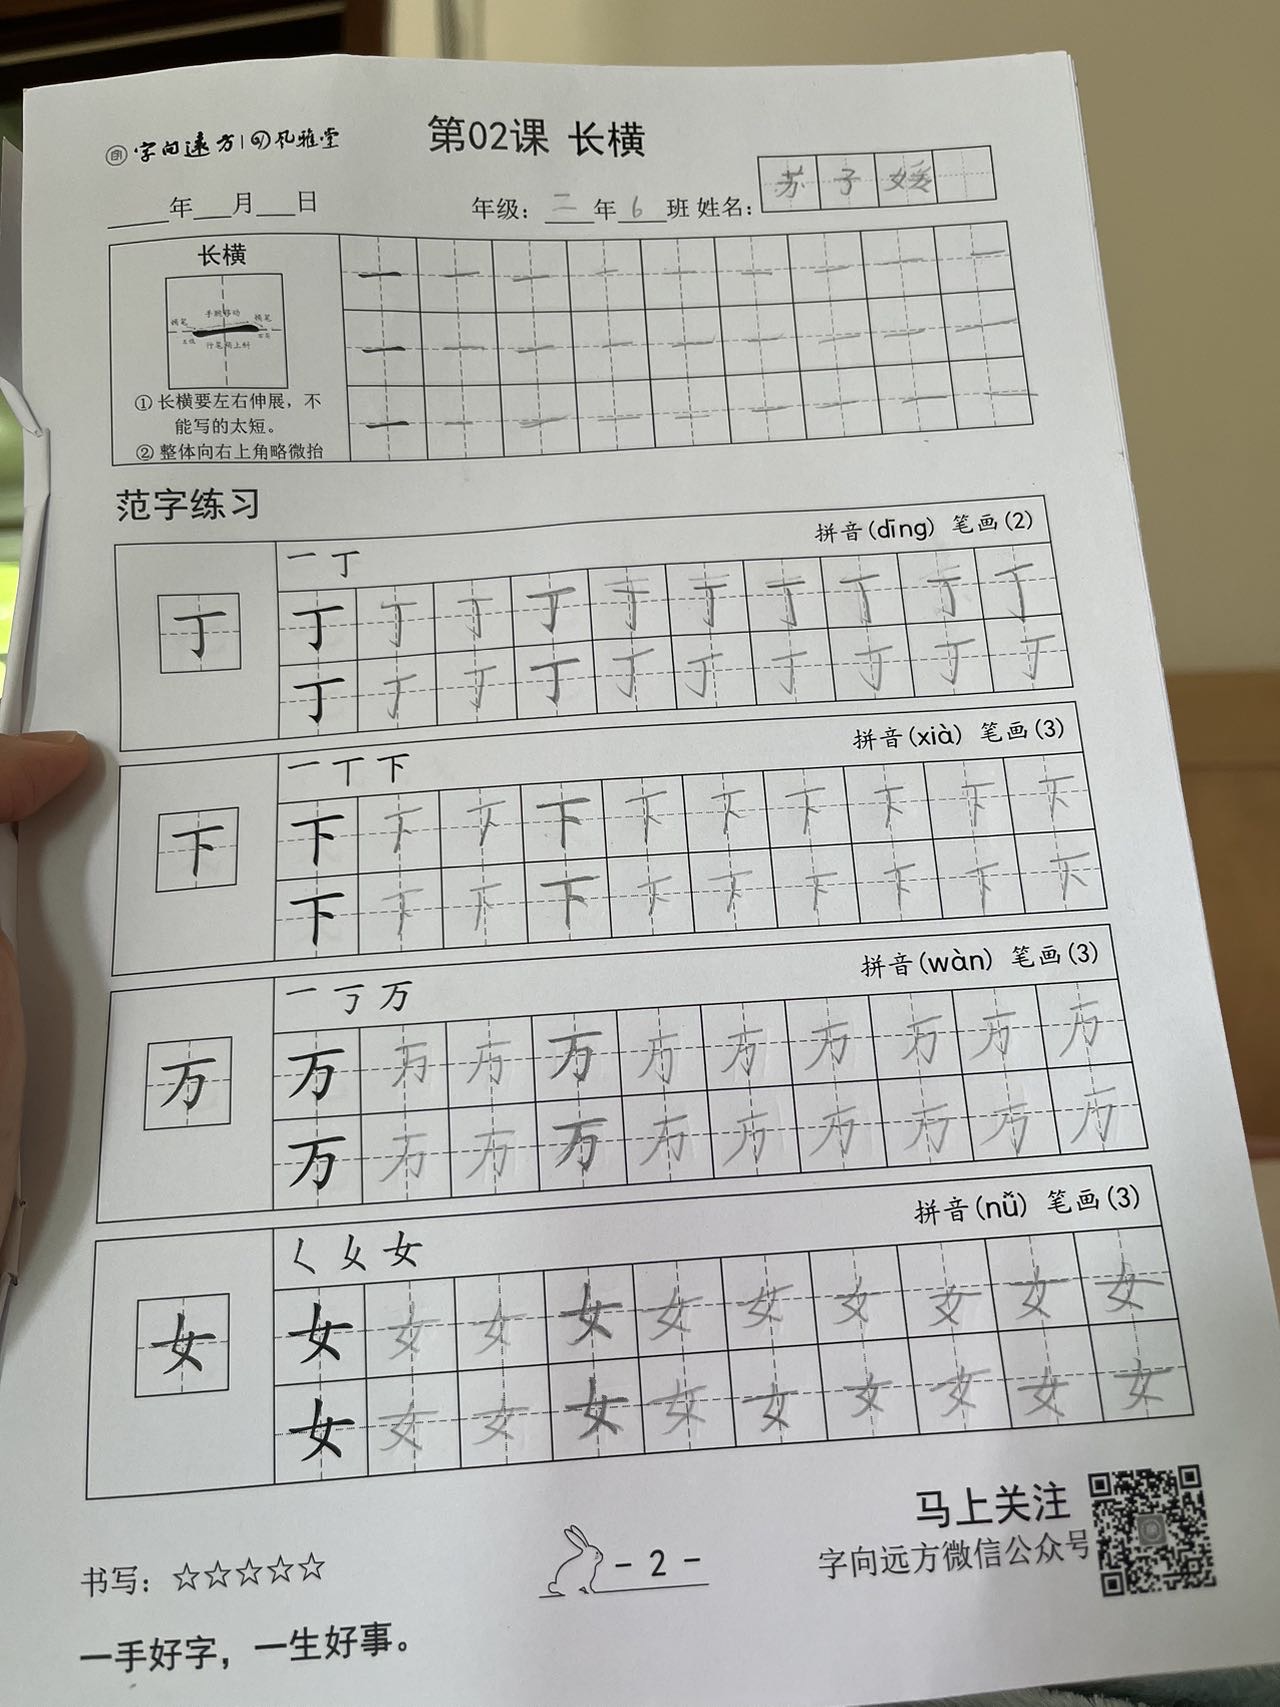 字向远方 风雅堂
第02课 长横
年 月 日 年级：二年6班 姓名：苏子媛
长横
手腕移动
行笔稍上斜
①长横要左右伸展，不
能写的太短。
②整体向右上角略微抬
一 一 一 一 一 一 一 一 一
一 一 一 一 一 一 一 一 一
一 一 一 一 一 一 一 一 一
范字练习
拼音(dīng) 笔画(2)
一 丁
丁
丁 丁 丁 丁 丁 丁 丁 丁 丁 丁
丁 丁 丁 丁 丁 丁 丁 丁 丁 丁
拼音(xià) 笔画(3)
一 丅 下
下
下 下 下 下 下 下 下 下 下 下
下 下 下 下 下 下 下 下 下 下
拼音(wàn) 笔画(3)
一 丂 万
万
万 万 万 万 万 万 万 万 万 万
万 万 万 万 万 万 万 万 万 万
拼音(nǚ) 笔画(3)
女
女
女 女 女 女 女 女 女 女 女 女
女 女 女 女 女 女 女 女 女 女
马上关注
字向远方微信公众号
书写：☆☆☆☆☆
- 2 -
一手好字，一生好事。